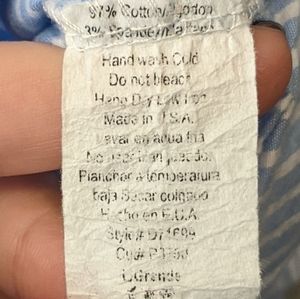 97% Cotton/Algodon
3% Spandex/
Hand wash Cold
Do not bleach
Hang Dry Low Iron
Made in U.S.A.
Lavar en agua fria
No usar blanqueador.
Planchar a temperatura
baja Secar colgado
Hecho en E.U.A.
Style# D71699
Cut#
L/Grande